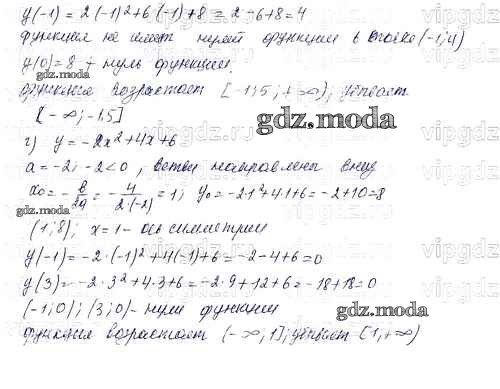 y(-1) = 2(-1)²+6·(-1)+8 = 2-6+8=4
функция не имеет нулей функции в точке (-1; 4)
y(0)=8 - нуль функции.
функция возрастает [-1,5; +∞), убывает
[-∞; -1,5]
gdz.moda
г) y = -2x²+4x+6
a = -2; -2<0, ветви направлены вниз
x₀ = -b/2a = -4/2·(-2) = 1; y₀ = -2·1²+4·1+6 = -2+10=8
gdz.moda
(1; 8); x = 1 - ось симметрии
y(-1) = -2·(-1)²+4(-1)+6 = -2-4+6=0
y(3) = -2·3²+4·3+6 = -2·9+12+6 = -18+18=0
(-1; 0); (3; 0) - нули функции
gdz.moda
функция возрастает (-∞; 1]; убывает [1, +∞)